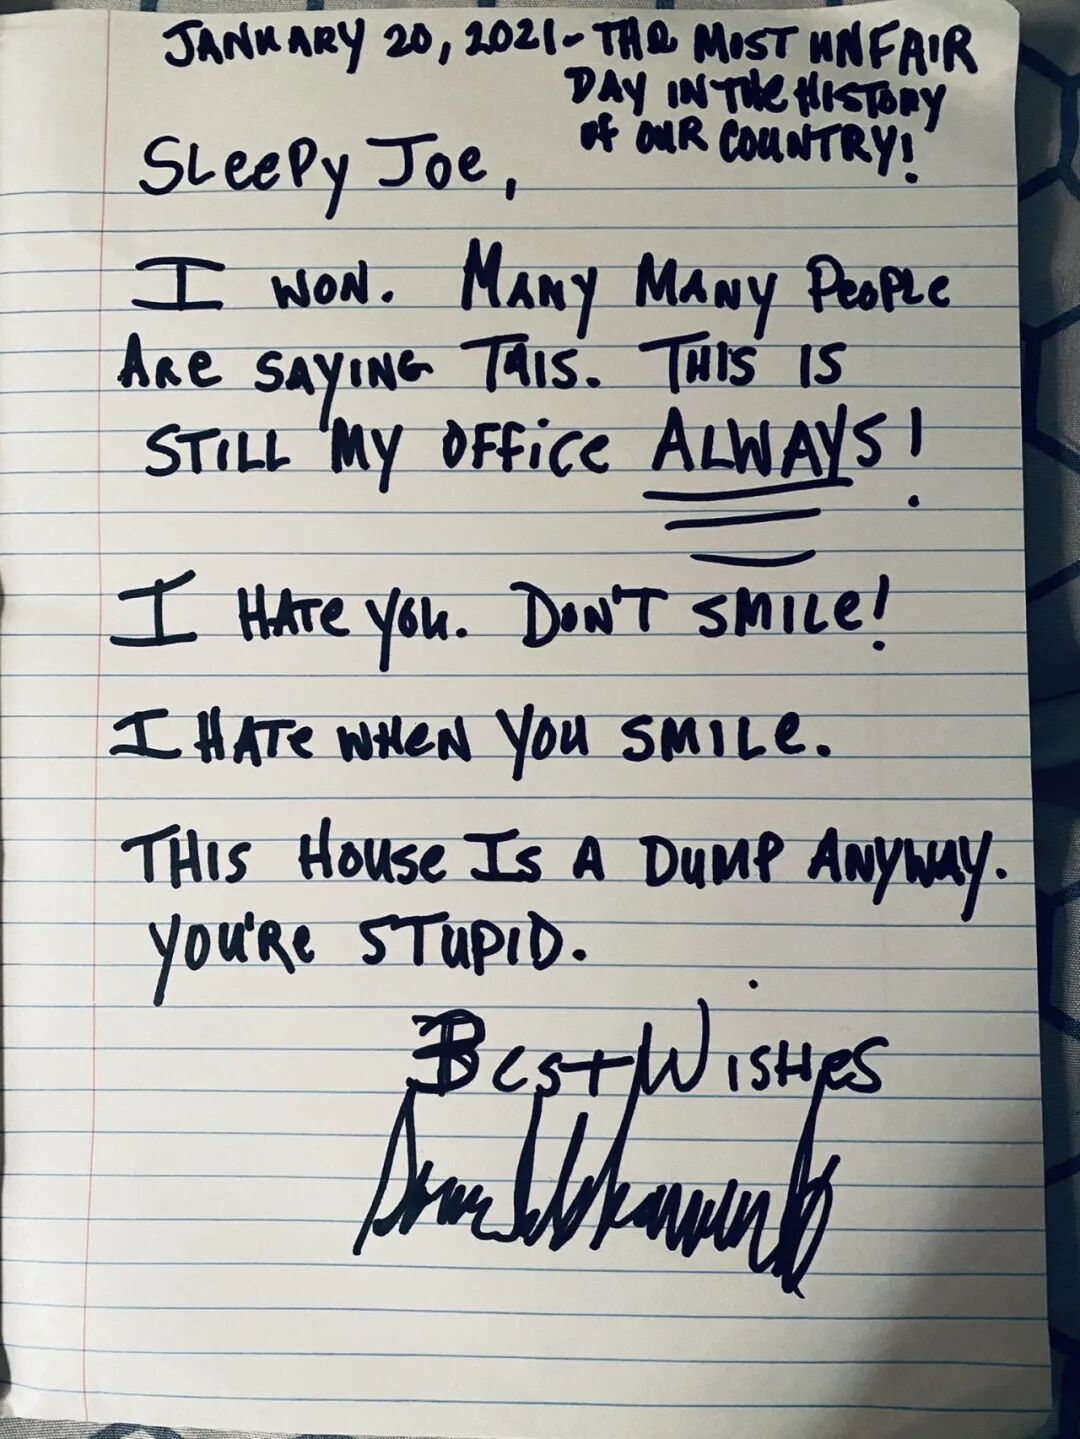 JANUARY 20, 2021 - THE MOST UNFAIR
DAY IN THE HISTORY
OF OUR COUNTRY!
SLEEPY JOE,
I WON. MANY MANY PEOPLE
ARE SAYING THIS. THIS IS
STILL MY OFFICE ALWAYS!
I HATE YOU. DON'T SMILE!
I HATE WHEN YOU SMILE.
THIS HOUSE IS A DUMP ANYWAY.
YOU'RE STUPID.
BEST WISHES